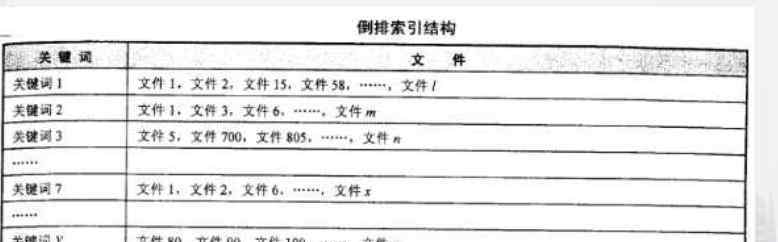 倒排索引结构
关键词 文件
关键词 1 文件 1，文件 2，文件 15，文件 58，……，文件 l
关键词 2 文件 1，文件 3，文件 6，……，文件 m
关键词 3 文件 5，文件 700，文件 805，……，文件 n
……
关键词 7 文件 1，文件 2，文件 6，……，文件 x
……
关键词 Y 文件 80，文件 90，文件 100